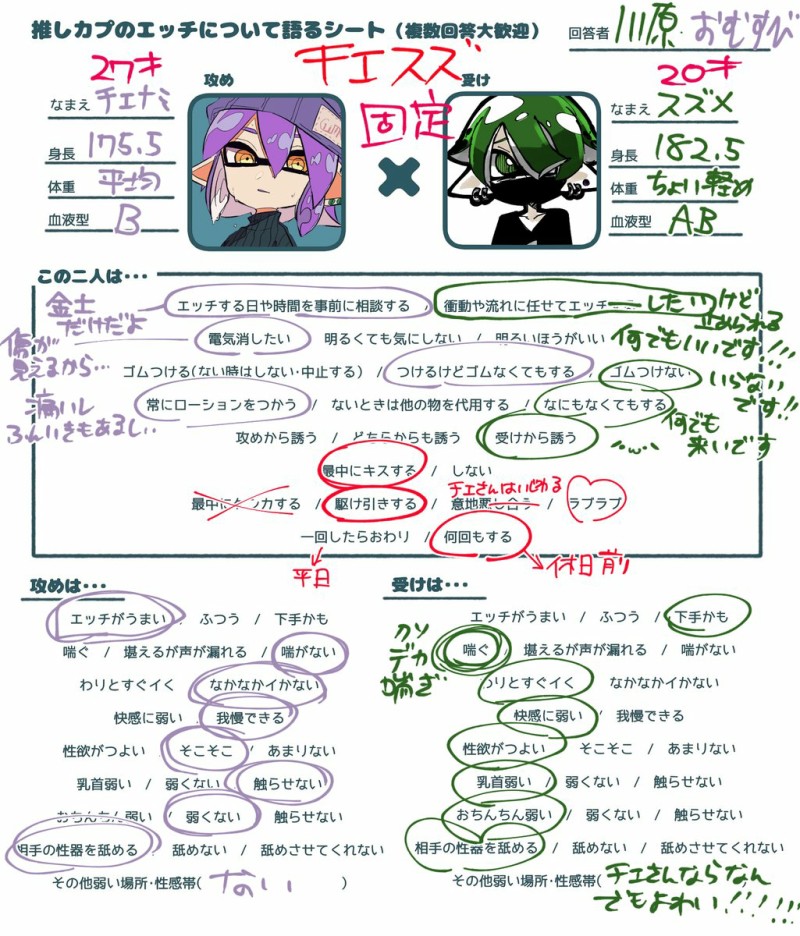 推しカプのエッチについて語るシート（複数回答大歓迎）
回答者 川原・おむすび
チエスズ
固定
27才
攻め
なまえ チエナミ
身長 175.5
体重 平均
血液型 B
20才
受け
なまえ スズメ
身長 182.5
体重 ちょい軽め
血液型 AB
この二人は・・・
エッチする日や時間を事前に相談する / 衝動や流れに任せてエッチ
金土だけだよ
したいけど
電気消したい / 明るくても気にしない / 明るいほうがいい
傷が見えるから…
何でもいいです!!!
ゴムつける(ない時はしない・中止する) / つけるけどゴムなくてもする / ゴムつけない
いらないです!!
常にローションをつかう / ないときは他の物を代用する / なにもなくてもする
痛いしふんいきもあるし..
何でも来いです
攻めから誘う / どちらからも誘う / 受けから誘う
最中にキスする / しない
チエさんはいじわる
最中にケンカする / 駆け引きする / 意地悪し合う / ラブラブ
一回したらおわり / 何回もする
平日
休日前
攻めは・・・
エッチがうまい / ふつう / 下手かも
喘ぐ / 堪えるが声が漏れる / 喘がない
わりとすぐイく / なかなかイかない
快感に弱い / 我慢できる
性欲がつよい / そこそこ / あまりない
乳首弱い / 弱くない / 触らせない
おちんちん弱い / 弱くない / 触らせない
相手の性器を舐める / 舐めない / 舐めさせてくれない
その他弱い場所・性感帯( ない )
受けは・・・
エッチがうまい / ふつう / 下手かも
クソデカ喘ぎ
喘ぐ / 堪えるが声が漏れる / 喘がない
わりとすぐイく / なかなかイかない
快感に弱い / 我慢できる
性欲がつよい / そこそこ / あまりない
乳首弱い / 弱くない / 触らせない
おちんちん弱い / 弱くない / 触らせない
相手の性器を舐める / 舐めない / 舐めさせてくれない
その他弱い場所・性感帯( チエさんならなん
でもよわい!!!!!!